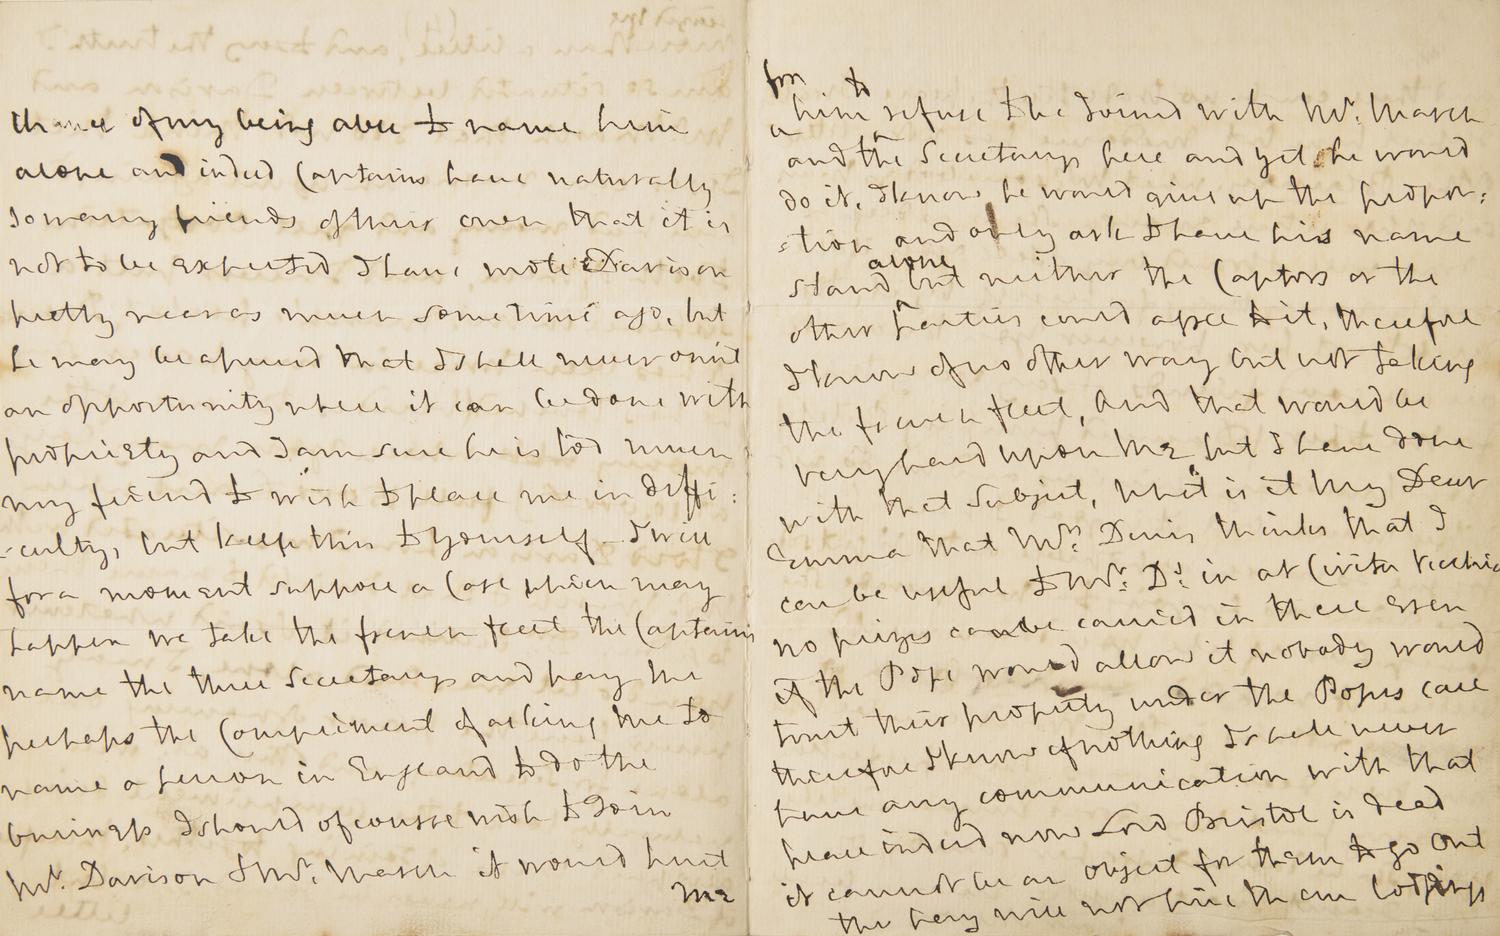 chance of my being able to name him
alone and indeed Captains have naturally
so many friends of their own that it is
not to be expected I have wrote Davison
pretty near as much sometime ago, but
he may be assured that I shall never omit
an opportunity where it can be done with
propriety and I am sure he is too much
my friend to wish to place me in diffi:
:culty, but keep this to yourself I will
for a moment suppose a Case which may
happen we take the french fleet the Captains
name the three Secretarys and pay me
perhaps the Compliment of asking me to
name a person in England to do the
business I should of course wish to Join
Mr. Davison to Mr. Marsh it would hurt
me
for
him to refuse to be Joined with Mr. Marsh
and the Secretarys here and yet he would
do it, I know he would give up the propor:
:tion and only ask to have his name
stand alone but neither the Captors or the
other parties could agree to it, therefore
I know of no other way but not taking
the french fleet, And that would be
very hard upon me but I have done
with that Subject, what is it My Dear
Emma that Mrs. Denis thinks that I
can be useful to Mr. Ds. in at Civita Vecchia
no prizes can be carried in there even
if the Pope would allow it nobody would
trust their property under the Popes care
therefore I know of nothing I shall never
have any communication with that
place indeed now Lord Bristol is dead
it cannot be an object for them to go out
the pay will not hire them lodgings